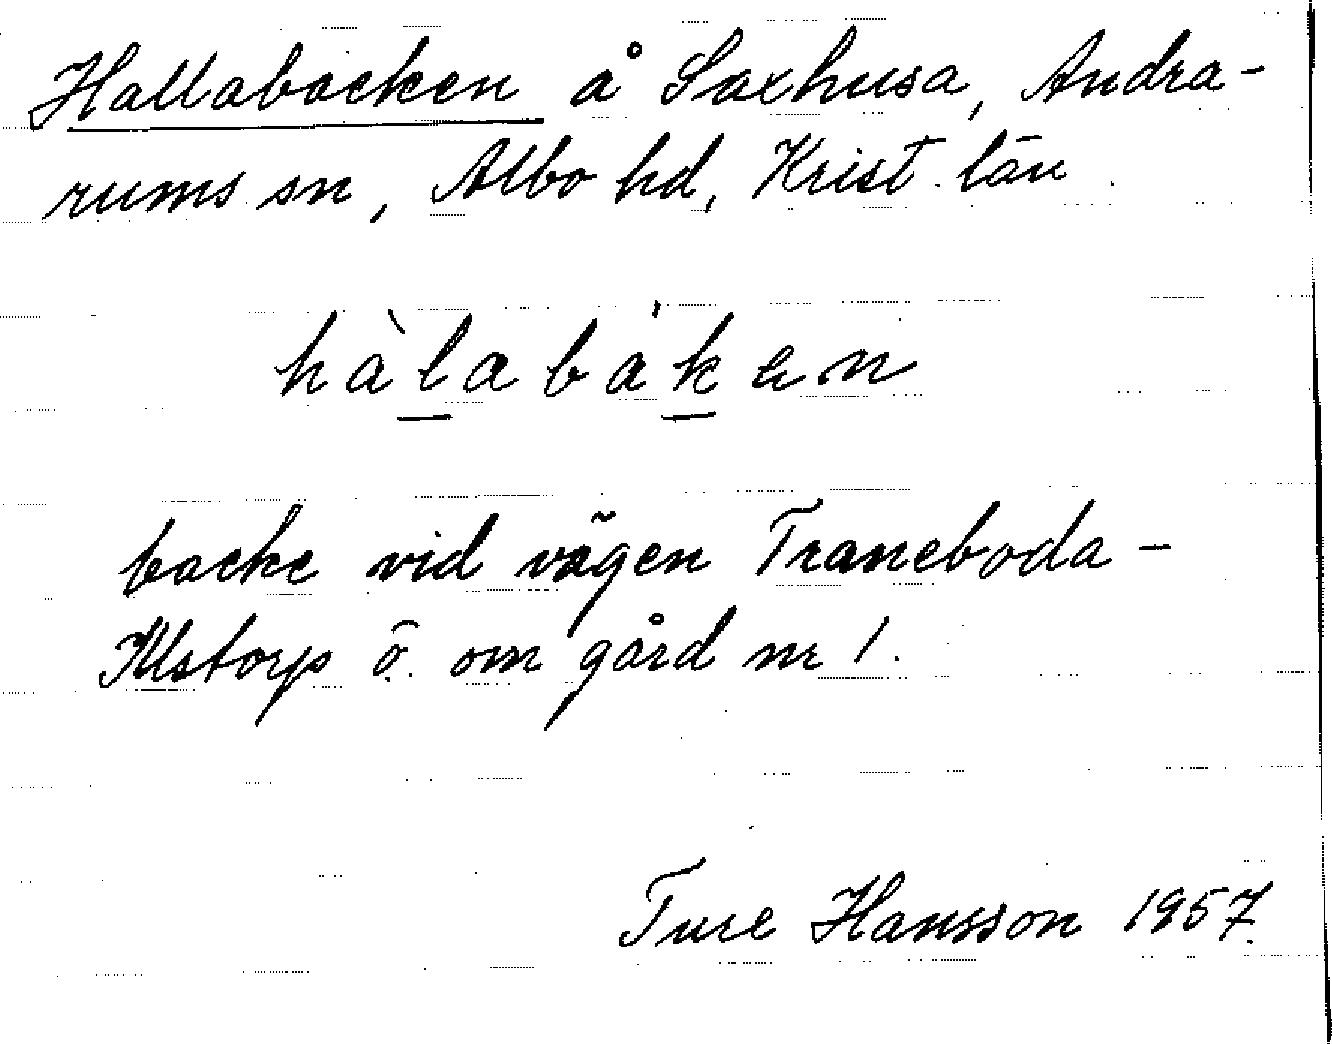 Hallabacken å Saxhusa, Andra-
rums sn, Albo hd, Krist. län.
hàlabáken
backe vid vägen Traneboda -
Illstorp ö. om gård nr 1.
Ture Hansson 1957.